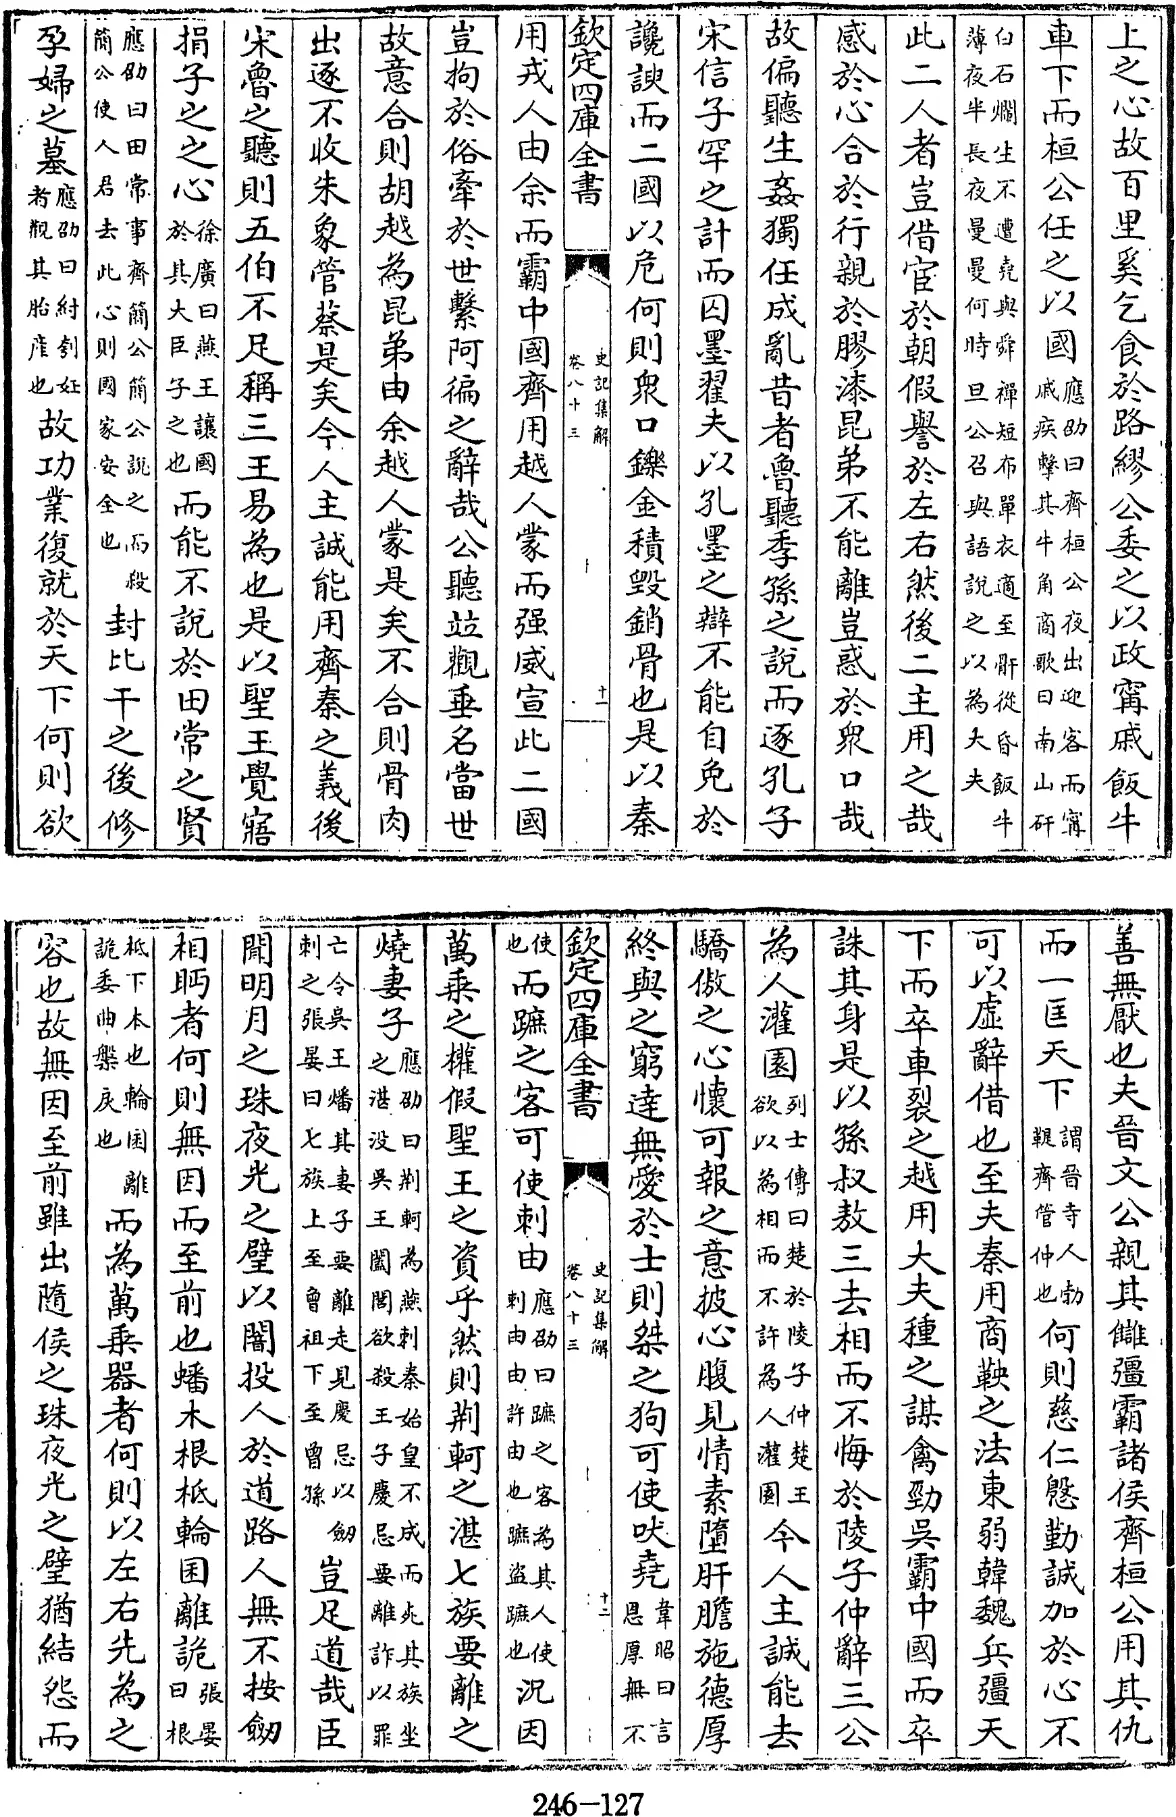 上之心故百里奚乞食於路繆公委之以政甯戚飯牛
車下而桓公任之以國應劭曰齊桓公夜出迎客而甯戚疾擊其牛角商歌曰南山矸
白石爛生不遭堯與舜禪短布單衣適至骭從昏飯牛薄夜半長夜曼曼何時旦公召與語說之以為大夫
此二人者豈借宦於朝假譽於左右然後二主用之哉
感於心合於行親於膠漆昆弟不能離豈惑於衆口哉
故偏聽生姦獨任成亂昔者魯聽季孫之說而逐孔子
宋信子罕之計而囚墨翟夫以孔墨之辯不能自免於
讒諛而二國以危何則衆口鑠金積毀銷骨也是以秦
欽定四庫全書 史記集解卷八十三 十一
用戎人由余而霸中國齊用越人蒙而强威宣此二國
豈拘於俗牽於世繫阿偏之辭哉公聽竝觀垂名當世
故意合則胡越為昆弟由余越人蒙是矣不合則骨肉
出逐不收朱象管蔡是矣今人主誠能用齊秦之義後
宋魯之聽則五伯不足稱三王易為也是以聖王覺寤
捐子之之心徐廣曰燕王讓國於其大臣子之也而能不說於田常之賢
應劭曰田常事齊簡公簡公說之而殺簡公使人君去此心則國家安全也封比干之後修
孕婦之墓應劭曰紂刳妊者觀其胎產也故功業復就於天下何則欲
善無厭也夫晉文公親其讎彊霸諸侯齊桓公用其仇
而一匡天下謂晉寺人勃鞮齊管仲也何則慈仁慇勤誠加於心不
可以虛辭借也至夫秦用商鞅之法東弱韓魏兵彊天
下而卒車裂之越用大夫種之謀禽勁吳霸中國而卒
誅其身是以孫叔敖三去相而不悔於陵子仲辭三公
為人灌園列士傳曰楚於陵子仲楚王欲以為相而不許為人灌園今人主誠能去
驕傲之心懷可報之意披心腹見情素墮肝膽施德厚
終與之窮達無愛於士則桀之狗可使吠堯韋昭曰言恩厚無不
欽定四庫全書 史記集解卷八十三 十二
使也而蹠之客可使刺由應劭曰蹠之客為其人使刺由由許由也蹠盜蹠也況因
萬乘之權假聖王之資乎然則荆軻之湛七族要離之
燒妻子應劭曰荆軻為燕刺秦始皇不成而死其族坐之湛没吳王闔閭欲殺王子慶忌要離詐以罪
亡令吳王燔其妻子要離走見慶忌以劒刺之張晏曰七族上至曾祖下至曾孫豈足道哉臣
聞明月之珠夜光之璧以闇投人於道路人無不按劒
相眄者何則無因而至前也蟠木根柢輪囷離詭張晏曰根
柢下本也輪囷離詭委曲槃戾也而為萬乘器者何則以左右先為之
容也故無因至前雖出隨侯之珠夜光之璧猶結怨而
246-127